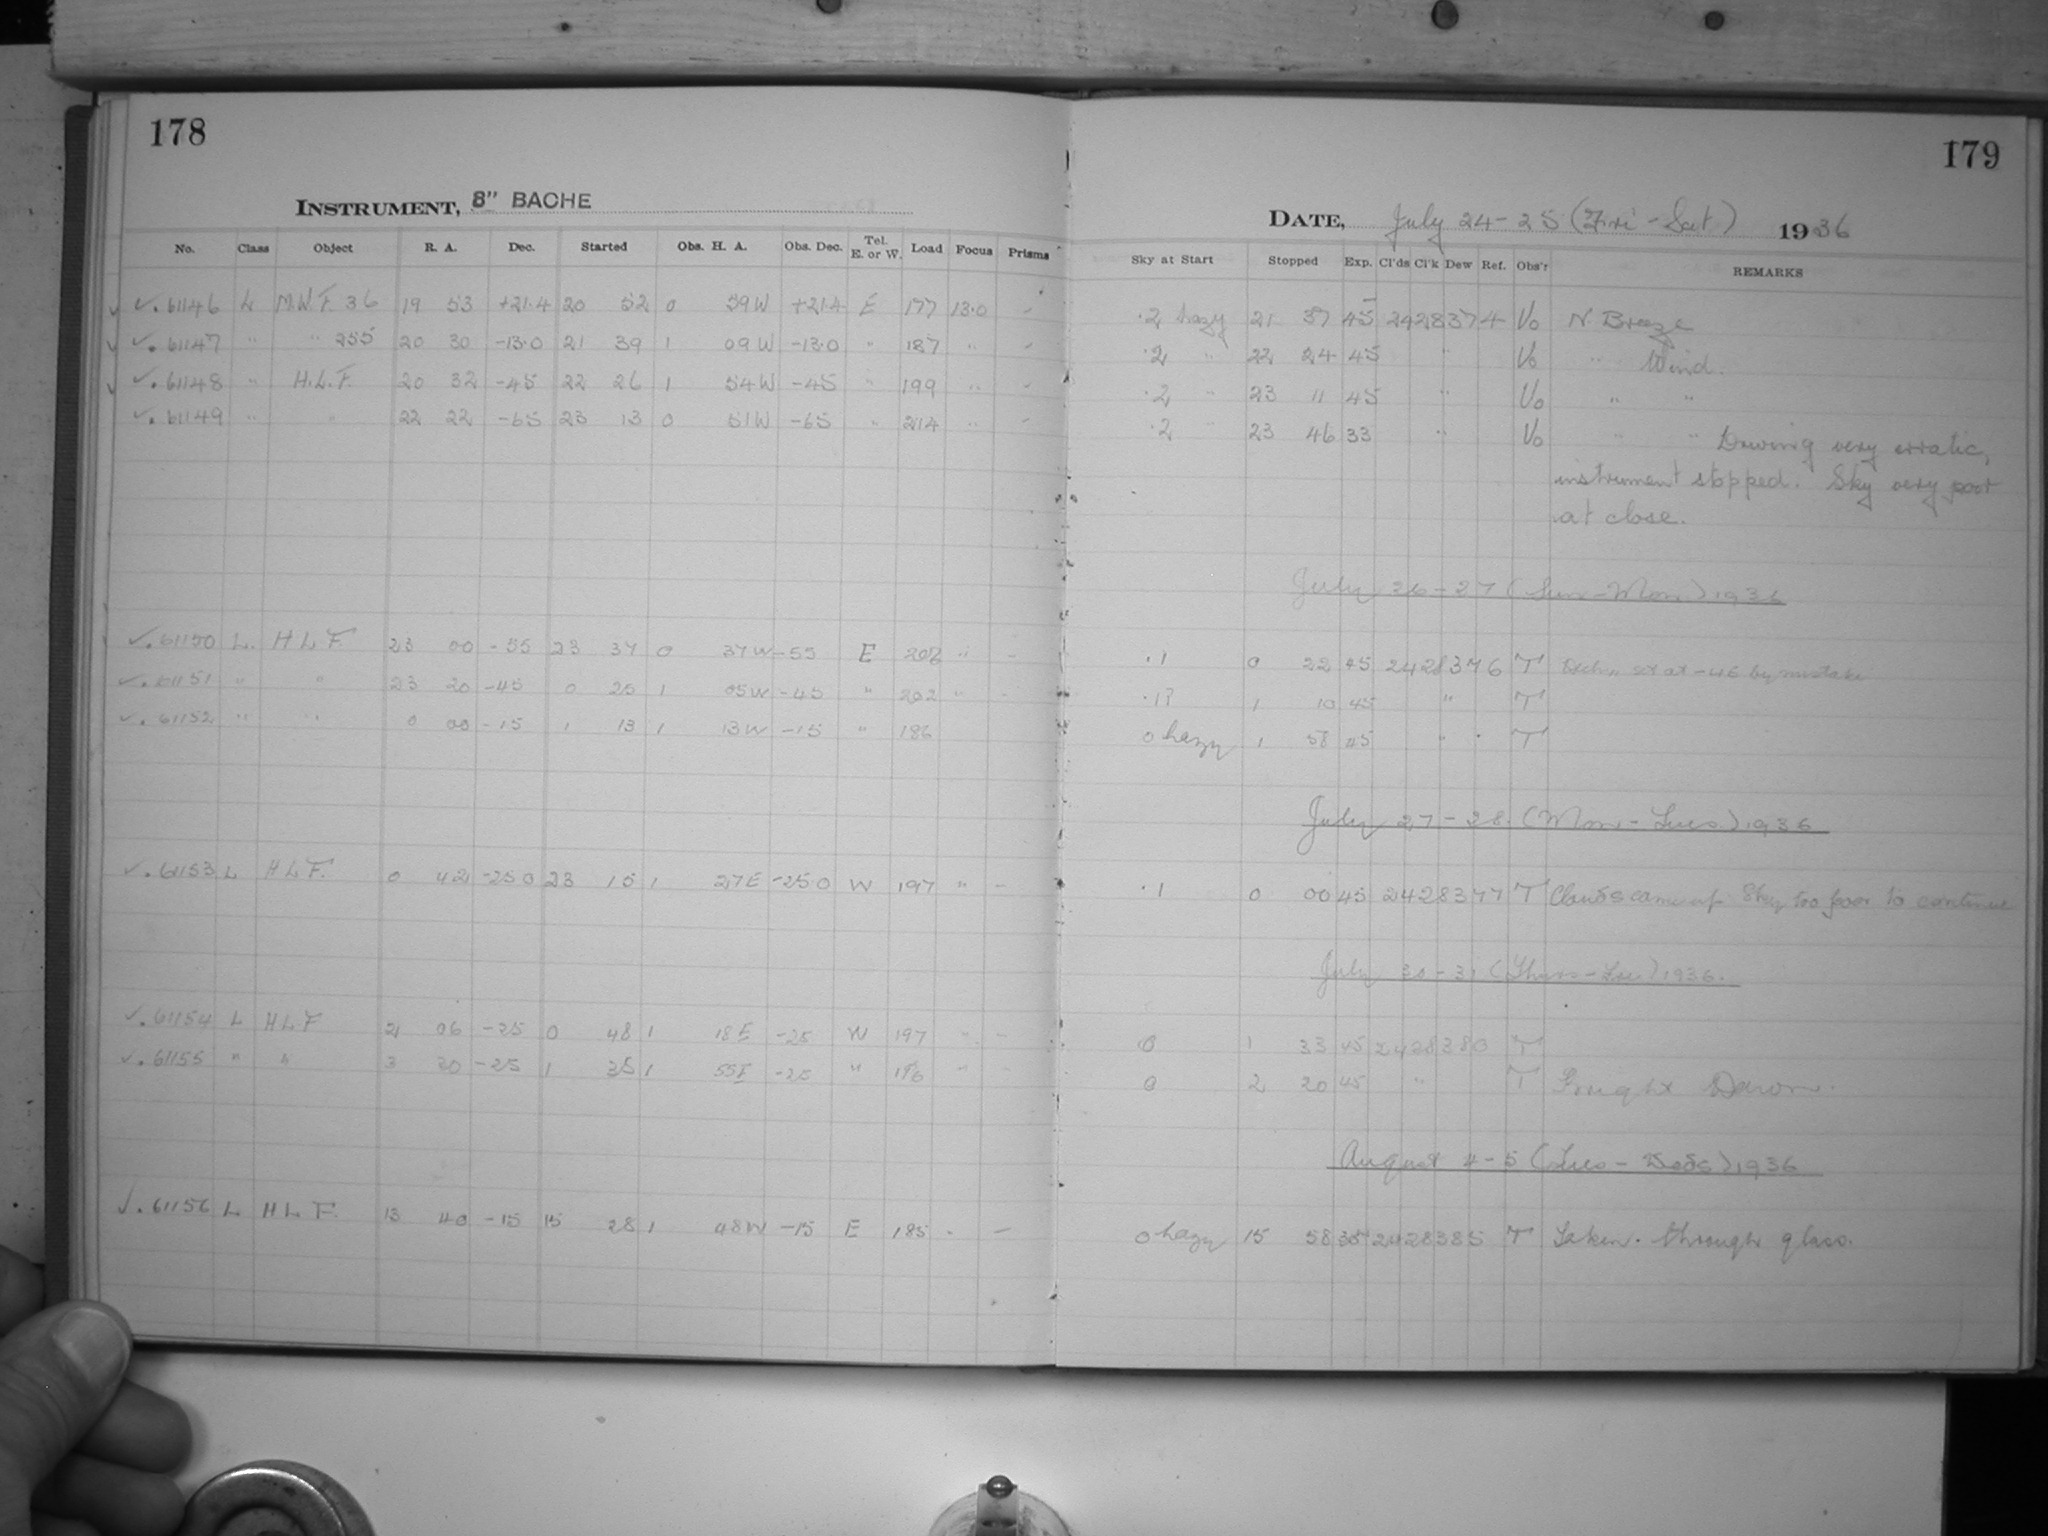 178
INSTRUMENT, 8" BACHE
No. Class Object R. A. Dec. Started Obs. H. A. Obs. Dec. Tel. E. or W. Load Focus Prisms
✓. 61146 L M.W.F. 36 19 53 +21.4 20 52 0 59W +21.4 E 177 13.0 -
✓. 61147 " " 255 20 30 -13.0 21 39 1 09W -13.0 " 187 " -
✓. 61148 " H.L.F. 20 32 -45 22 26 1 54W -45 " 199 " -
✓. 61149 " " 22 22 -65 23 13 0 51W -65 " 214 " -
✓. 61150 L. H L F 23 00 -55 23 37 0 37W -55 E 208 " -
✓. 61151 " " 23 20 -45 0 25 1 05W -45 " 202 " -
✓. 61152 " " 0 00 -15 1 13 1 13W -15 " 186
✓. 61153 L H L F. 0 42 -25 0 23 15 1 27E -25 0 W 197 " -
✓. 61154 L H L F 2 06 -25 0 48 1 18E -25 W 197 " -
✓. 61155 " " 3 30 -25 1 35 1 55E -25 " 196 " -
✓. 61156 L. H L F. 13 40 -15 15 28 1 48W -15 E 185 - -
179
DATE, July 24-25 (Fri - Sat) 1936
Sky at Start Stopped Exp. Cl'ds Cl'k Dew Ref. Obs'r REMARKS
.2 hazy 21 37 45 2428374 Vo N. Breeze
.2 " 22 24 45 " Vo " Wind.
.2 " 23 11 45 " Vo " "
.2 " 23 46 33 " Vo " " Driving very erratic,
instrument stopped. Sky very poor
at close.
July 26-27 (Sun-Mon) 1936
.1 0 22 45 2428376 T Decln set at -46 by mistake
.1? 1 10 45 " T
0 hazy 1 58 45 " " T
July 27-28 (Mon-Tues) 1936
.1 0 00 45 2428377 T Clouds came up Sky too poor to continue
July 30-31 (Thurs-Fri) 1936.
0 1 33 45 2428380 T
0 2 20 45 " T Fought Dawn.
August 4-5 (Tues-Weds) 1936
0 hazy 15 58 30 2428385 T Taken through glass.